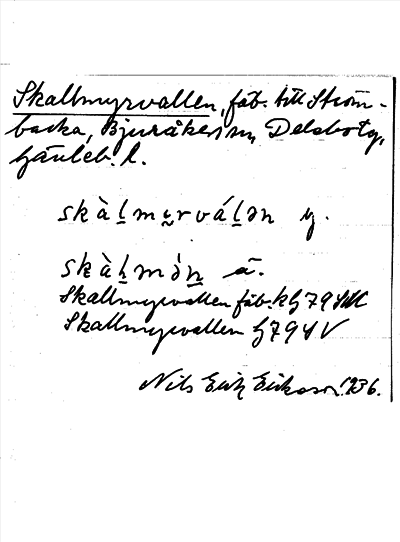 Skallmyrvallen, fäb. till Ström-
backa, Bjuråkers sn, Delsbo tg,
Gävleb. l.
skàl̠my̬rvál̠ən y.
skàl̠mɔ̀n̠ ä.
Skallmyrvallen fäb. kG 79 SM
Skallmyrvallen G 79 S V
Nils Erik Eriksson. 1936.